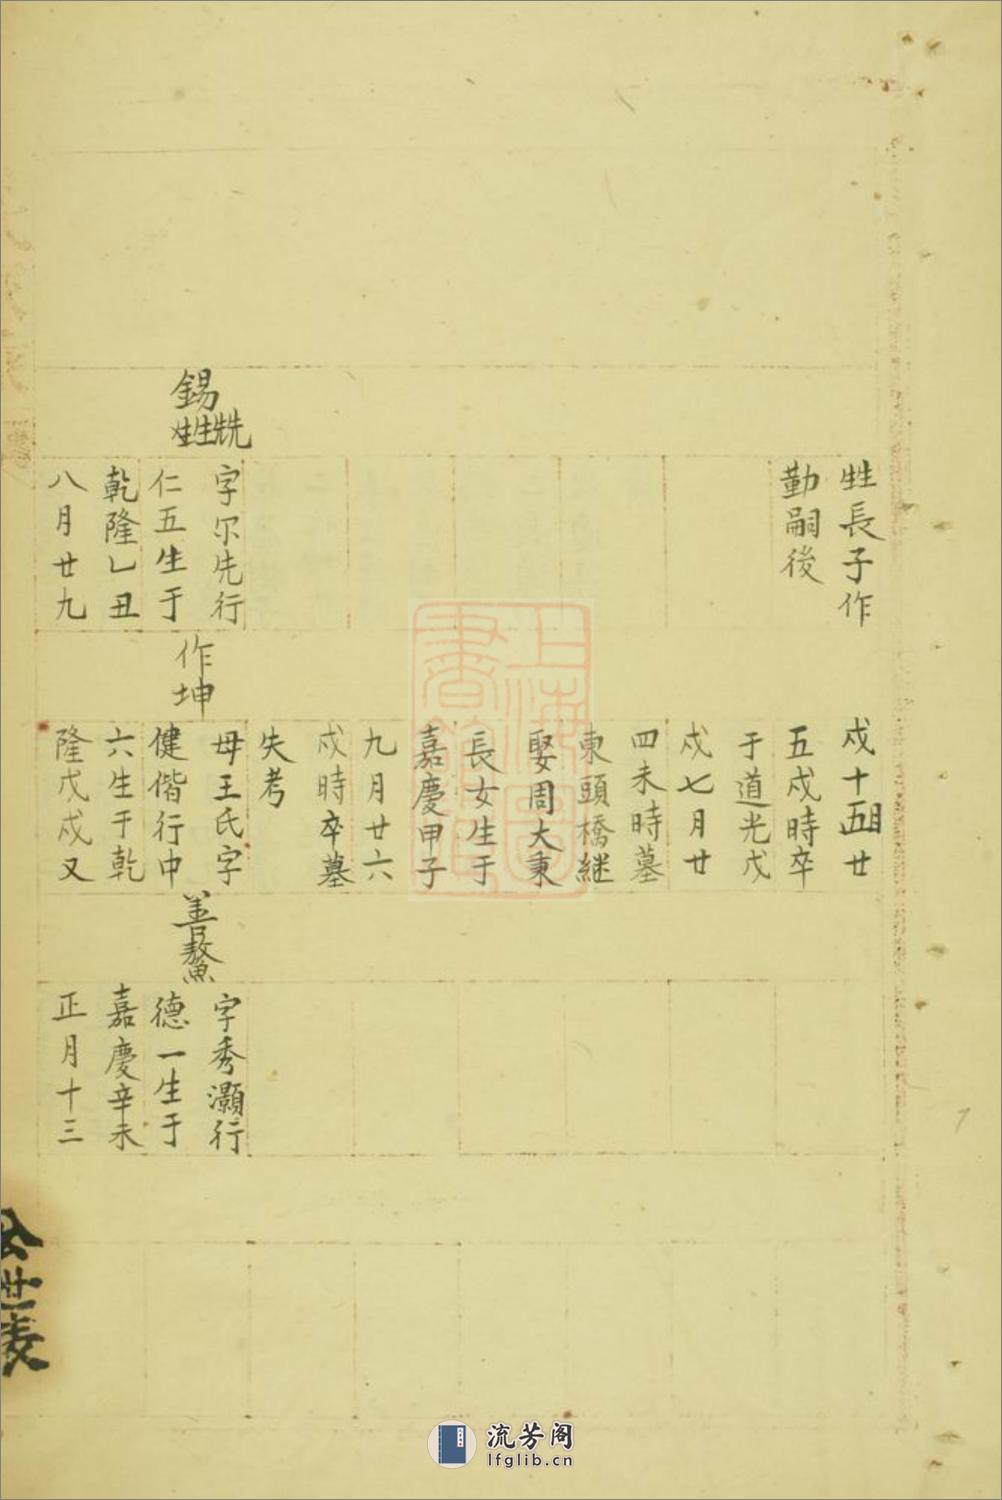 錫
甡甡兟
甡長子作
勤嗣後
字尔先行
仁五生于
乾隆乙丑
八月廿九
作
坤
戍十五且廿
五戍時卒
于道光戊
戍七月廿
四未時墓
東頭橋継
娶周大秉
長女生于
嘉慶甲子
九月廿六
戍時卒墓
失考
母王氏字
健偕行中
六生于乾
隆戊戍又
善
鰲
字秀灝行
德一生于
嘉慶辛未
正月十三
公世表
上海圖書館藏
流芳阁
lfglib.cn